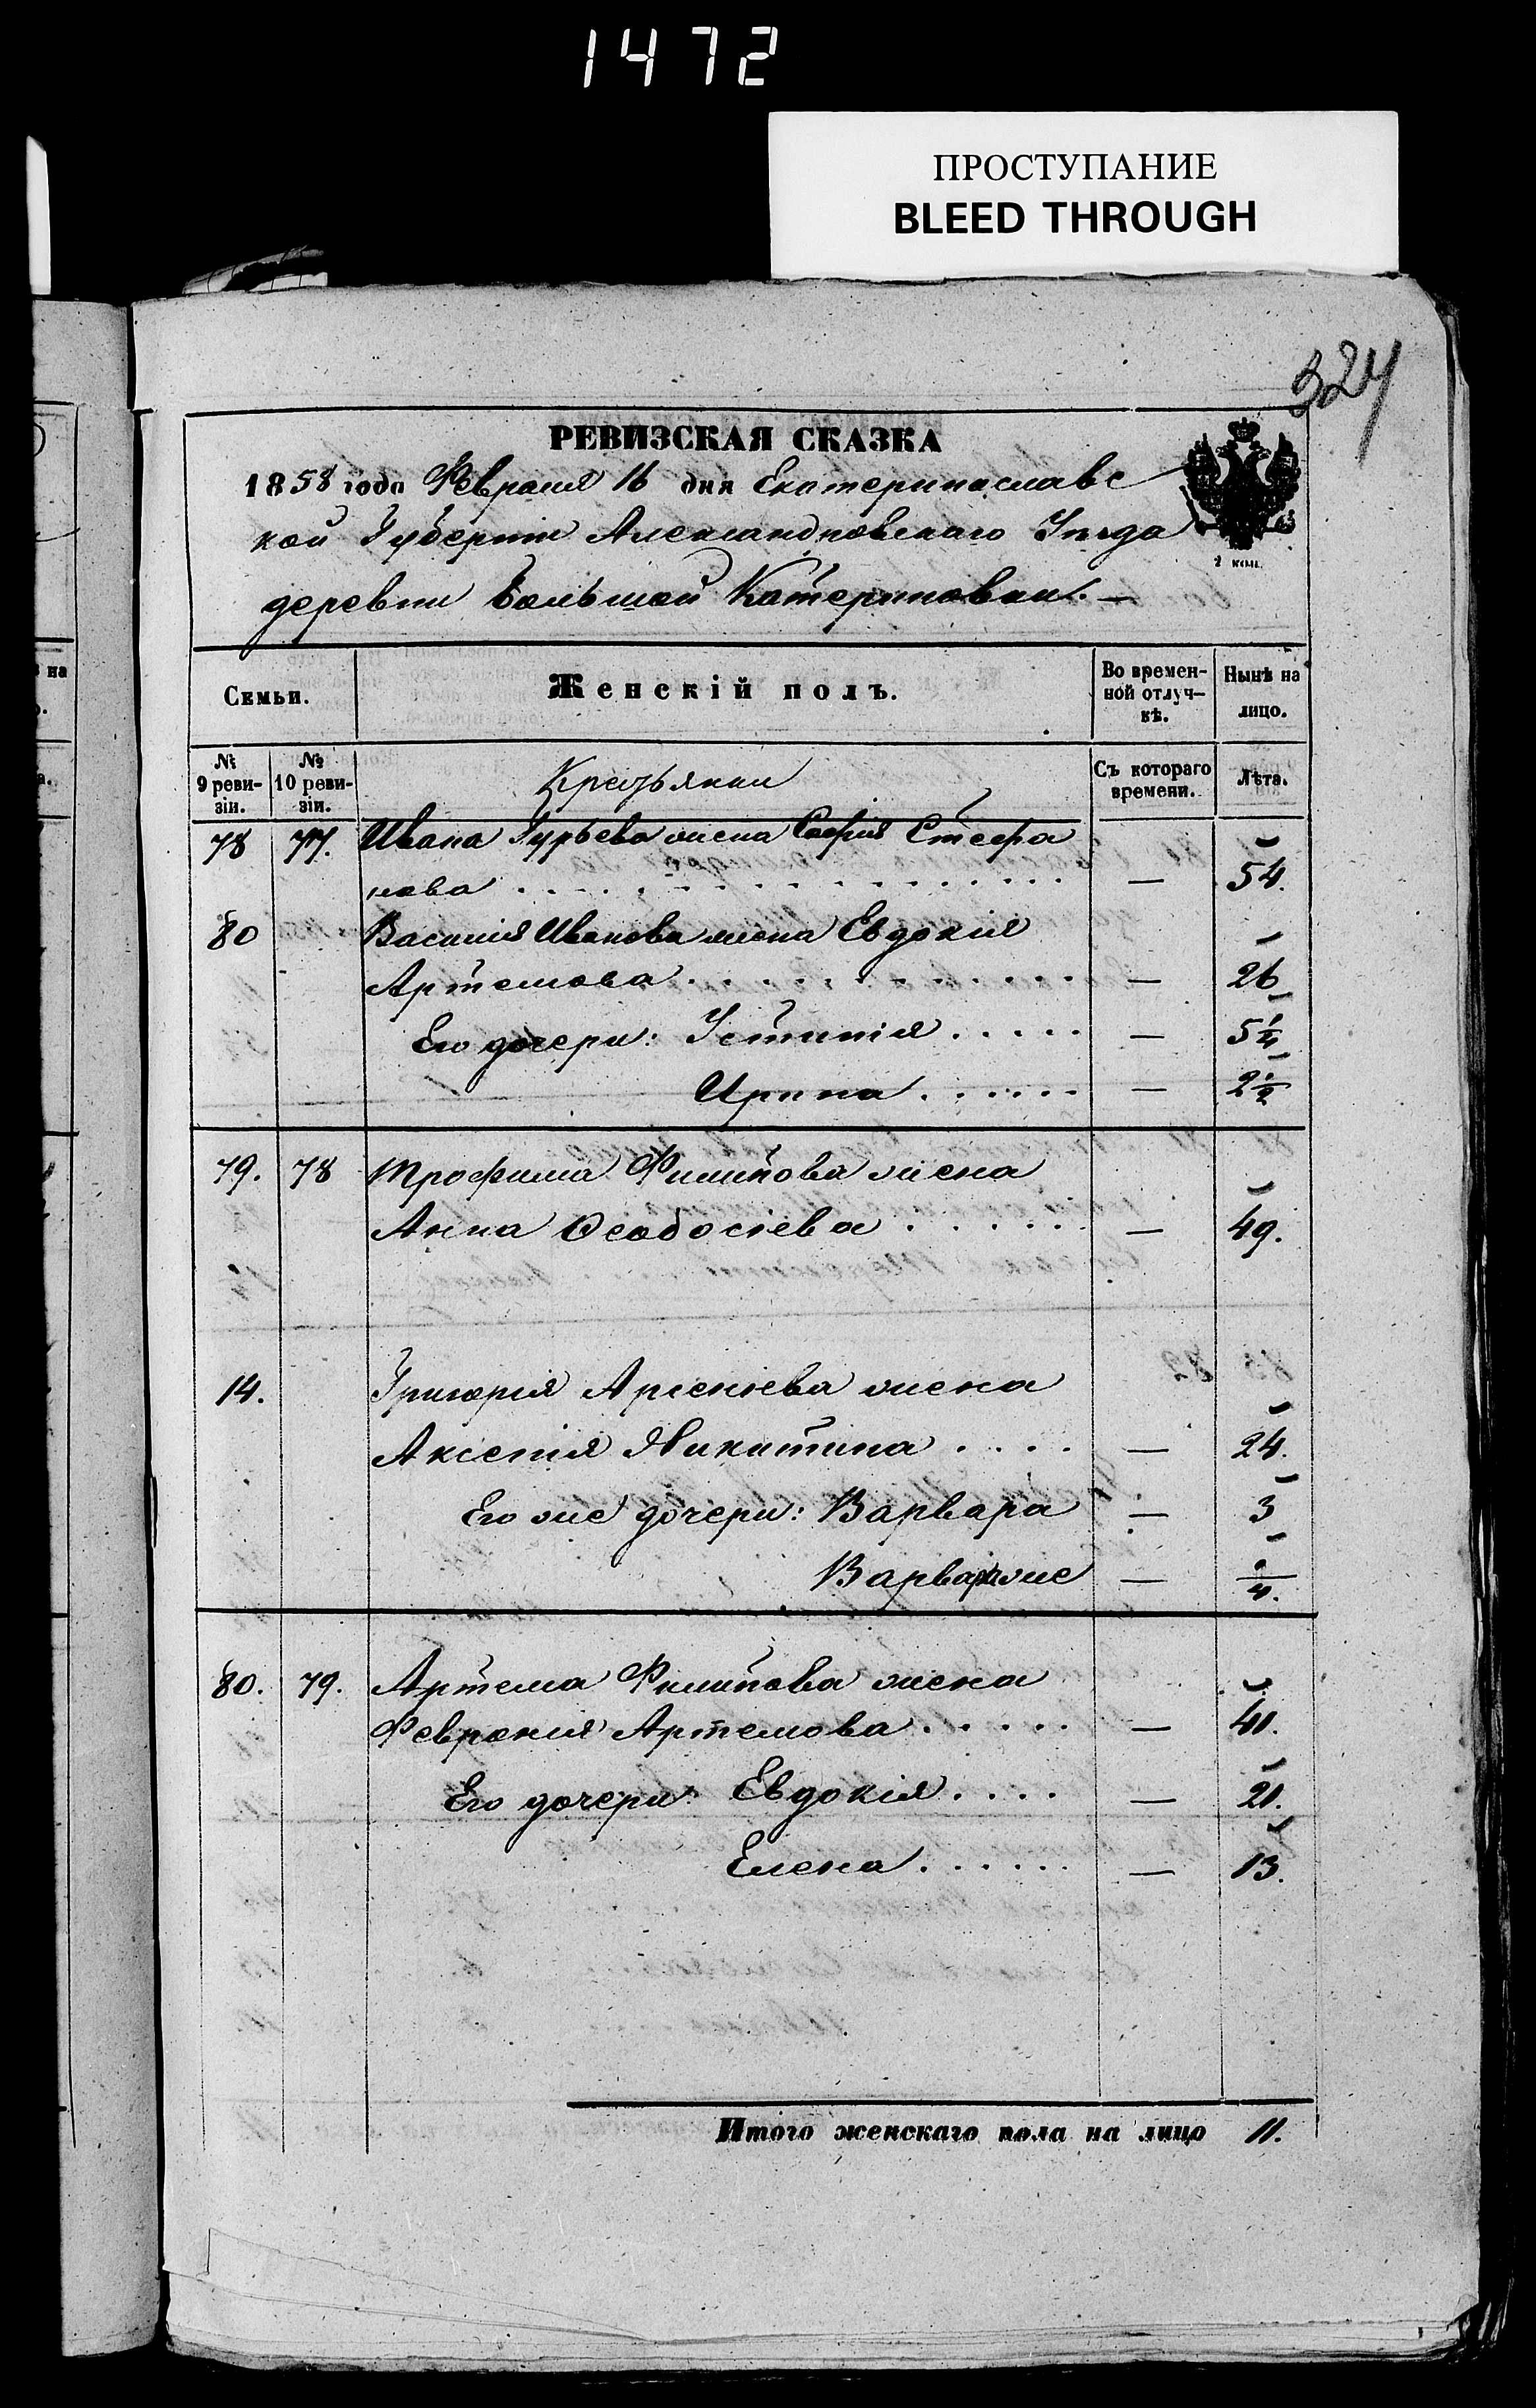 1472
ПРОСТУПАНИЕ
BLEED THROUGH
324
РЕВИЗСКАЯ СКАЗКА
1858 года Февраля 16 дня Екатеринославс
кой Губерніи Александровскаго Уѣзда
2 коп.
деревни Большой Катериновки. —
Семьи. Женскій полъ. Во времен-ной отлуч-кѣ. Нынѣ на лицо.
№ 9 реви-зіи. № 10 реви-зіи. Крестьянки Съ котораго времени. Лѣта.
78 77. Ивана Гурьева жена Софія Стефа
нова . . . . . . . . . — 54.
80 Василія Иванова жена Евдокія
Артемова . . . . . . . . . — 26
Его дочери: Устинія . . . . . — 5 1/4
Ирина . . . . . . — 2 1/2
79. 78 Трофима Филипова жена
Анна Ѳеодосіева . . . . . — 49.
14. Григорія Арсеніева жена
Аксенія Никитина . . . . — 24.
Его же дочери: Варвара — 3
Варвара же — 1/4.
80. 79. Артема Филипова жена
Февронія Артемова . . . . . — 41.
Его дочери: Евдокія . . . . — 21.
Елена . . . . . . — 13.
Итого женскаго пола на лицо 11.